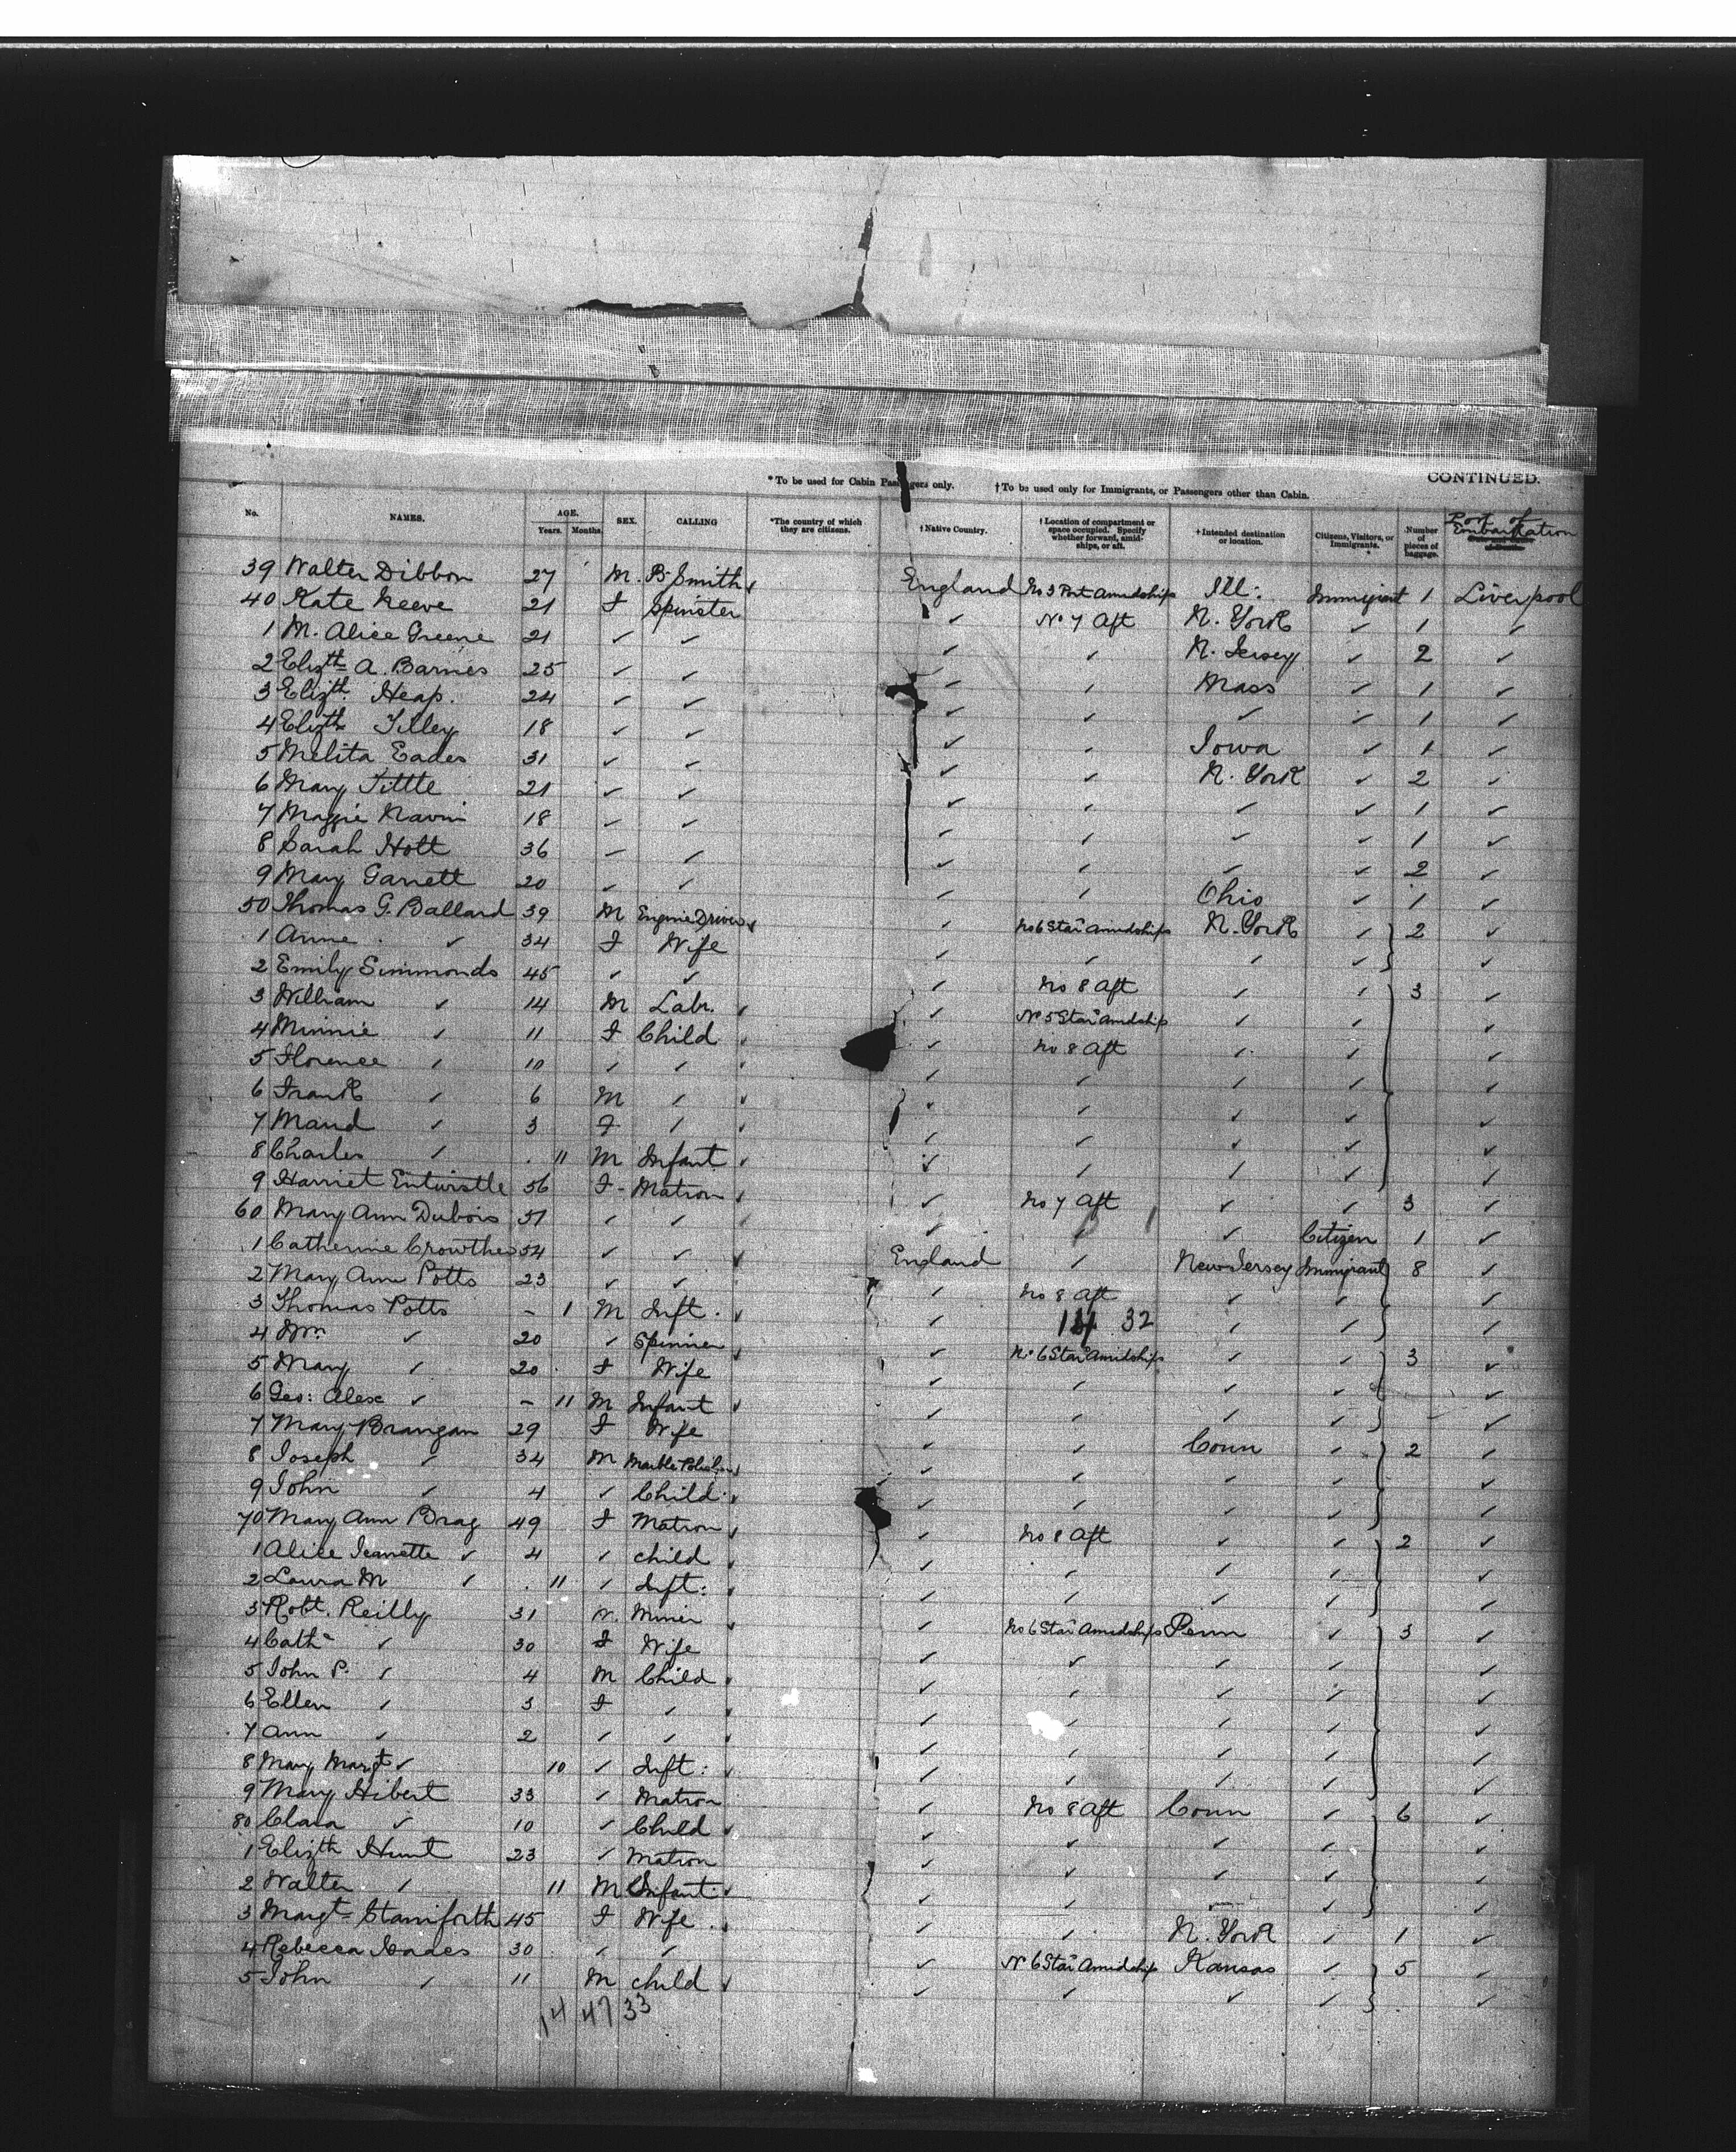 CONTINUED.
* To be used for Cabin Passengers only. † To be used only for Immigrants, or Passengers other than Cabin.
No. NAMES. AGE. Years. Months. SEX. CALLING *The country of which they are citizens. †Native Country. †Location of compartment or space occupied. Specify whether forward, amidships, or aft. †Intended destination or location. Citizens, Visitors, or Immigrants. Number of pieces of baggage. Port of Embarkation
39 Walter Dibbon 27 M. B. Smith ✓ England No 3 Port Amidships Ill: Immigrant 1 Liverpool
40 Kate Neeve 21 F Spinster ✓ No 7 Aft N. York ✓ 1 ✓
1 M. Alice Greene 21 ✓ ✓ ✓ ✓ N. Jersey ✓ 2 ✓
2 Elizth A. Barnes 25 ✓ ✓ ✓ ✓ Mass ✓ 1 ✓
3 Elizth Heap. 24 ✓ ✓ ✓ ✓ ✓ ✓ 1 ✓
4 Elizth Tilley 18 ✓ ✓ ✓ ✓ Iowa ✓ 1 ✓
5 Melita Eades 31 ✓ ✓ ✓ ✓ N. York ✓ 2 ✓
6 Mary Tittle 21 ✓ ✓ ✓ ✓ ✓ ✓ 1 ✓
7 Maggie 18 ✓ ✓ ✓ ✓ ✓ ✓ 1 ✓
8 Sarah Holt 36 ✓ ✓ ✓ ✓ ✓ ✓ 2 ✓
9 Mary Garrett 20 ✓ ✓ ✓ ✓ Ohio ✓ 1 ✓
50 Thomas G. Ballard 39 M Engine Driver ✓ ✓ No 6 Star Amidships N. York ✓ 2 ✓
1 Anne ✓ 34 F Wife ✓ ✓ ✓ ✓ ✓
2 Emily Simmonds 45 ✓ ✓ ✓ No 8 Aft ✓ ✓ 3 ✓
3 William ✓ 14 M Labr. ✓ ✓ No 5 Star Amidship ✓ ✓ ✓
4 Minnie ✓ 11 F Child ✓ ✓ No 8 Aft ✓ ✓ ✓
5 Florence ✓ 10 ✓ ✓ ✓ ✓ ✓ ✓ ✓ ✓
6 Frank ✓ 6 M ✓ ✓ ✓ ✓ ✓ ✓ ✓
7 Maud ✓ 3 F ✓ ✓ ✓ ✓ ✓ ✓ ✓
8 Charles ✓ 11 M Infant ✓ ✓ ✓ ✓ ✓ ✓
9 Harriet Entwistle 56 F - Matron ✓ ✓ No 7 Aft ✓ ✓ 3 ✓
60 Mary Ann Dubois 51 ✓ ✓ ✓ ✓ ✓ Citizen 1 ✓
1 Catherine Crowther 54 ✓ ✓ ✓ England ✓ New Jersey Immigrant 8 ✓
2 Mary Ann Potts 23 ✓ ✓ ✓ No 8 Aft ✓ ✓ ✓
3 Thomas Potts - 1 M Inft. ✓ ✓ 32 ✓ ✓ ✓
4 Wm ✓ 20 ✓ Spinner ✓ ✓ No 6 Star Amidships ✓ ✓ 3 ✓
5 Mary ✓ 20 F Wife ✓ ✓ ✓ ✓ ✓
6 Geo: Alex ✓ - 11 M Infant ✓ ✓ ✓ ✓ ✓ ✓
7 Mary Brangan 29 F Wife ✓ ✓ Conn ✓ 2 ✓
8 Joseph ✓ 34 M Marble Polisher ✓ ✓ ✓ ✓ ✓ ✓
9 John ✓ 4 ✓ Child ✓ ✓ ✓ ✓ ✓ ✓
70 Mary Ann Brag 49 F Matron ✓ ✓ No 8 Aft ✓ ✓ 2 ✓
1 Alice Jeanette ✓ 4 ✓ child ✓ ✓ ✓ ✓ ✓ ✓
2 Laura M ✓ 11 ✓ Inft: ✓ ✓ ✓ ✓ ✓ ✓
3 Robt. Reilly 31 M. Miner ✓ ✓ No 6 Star Amidships Penn ✓ 3 ✓
4 Cath ✓ 30 F Wife ✓ ✓ ✓ ✓ ✓
5 John P. ✓ 4 M Child ✓ ✓ ✓ ✓ ✓ ✓
6 Ellen ✓ 3 F ✓ ✓ ✓ ✓ ✓ ✓ ✓
7 Ann ✓ 2 ✓ ✓ ✓ ✓ ✓ ✓ ✓ ✓
8 Mary Margt ✓ 10 ✓ Inft: ✓ ✓ ✓ ✓ ✓ ✓
9 Mary Hibert 33 ✓ Matron ✓ No 8 Aft Conn ✓ 6 ✓
80 Clara ✓ 10 ✓ Child ✓ ✓ ✓ ✓ ✓ ✓
1 Elizth Hunt 23 ✓ Matron ✓ ✓ ✓ ✓ ✓
2 Walter ✓ 11 M Infant ✓ ✓ ✓ ✓ ✓ ✓
3 Margt Staniforth 45 F Wife ✓ ✓ ✓ N. York ✓ 1 ✓
4 Rebecca Eades 30 ✓ ✓ ✓ No 6 Star Amidship Kansas ✓ 5 ✓
5 John ✓ 11 M child ✓ ✓ ✓ ✓ ✓ ✓
14 47 33